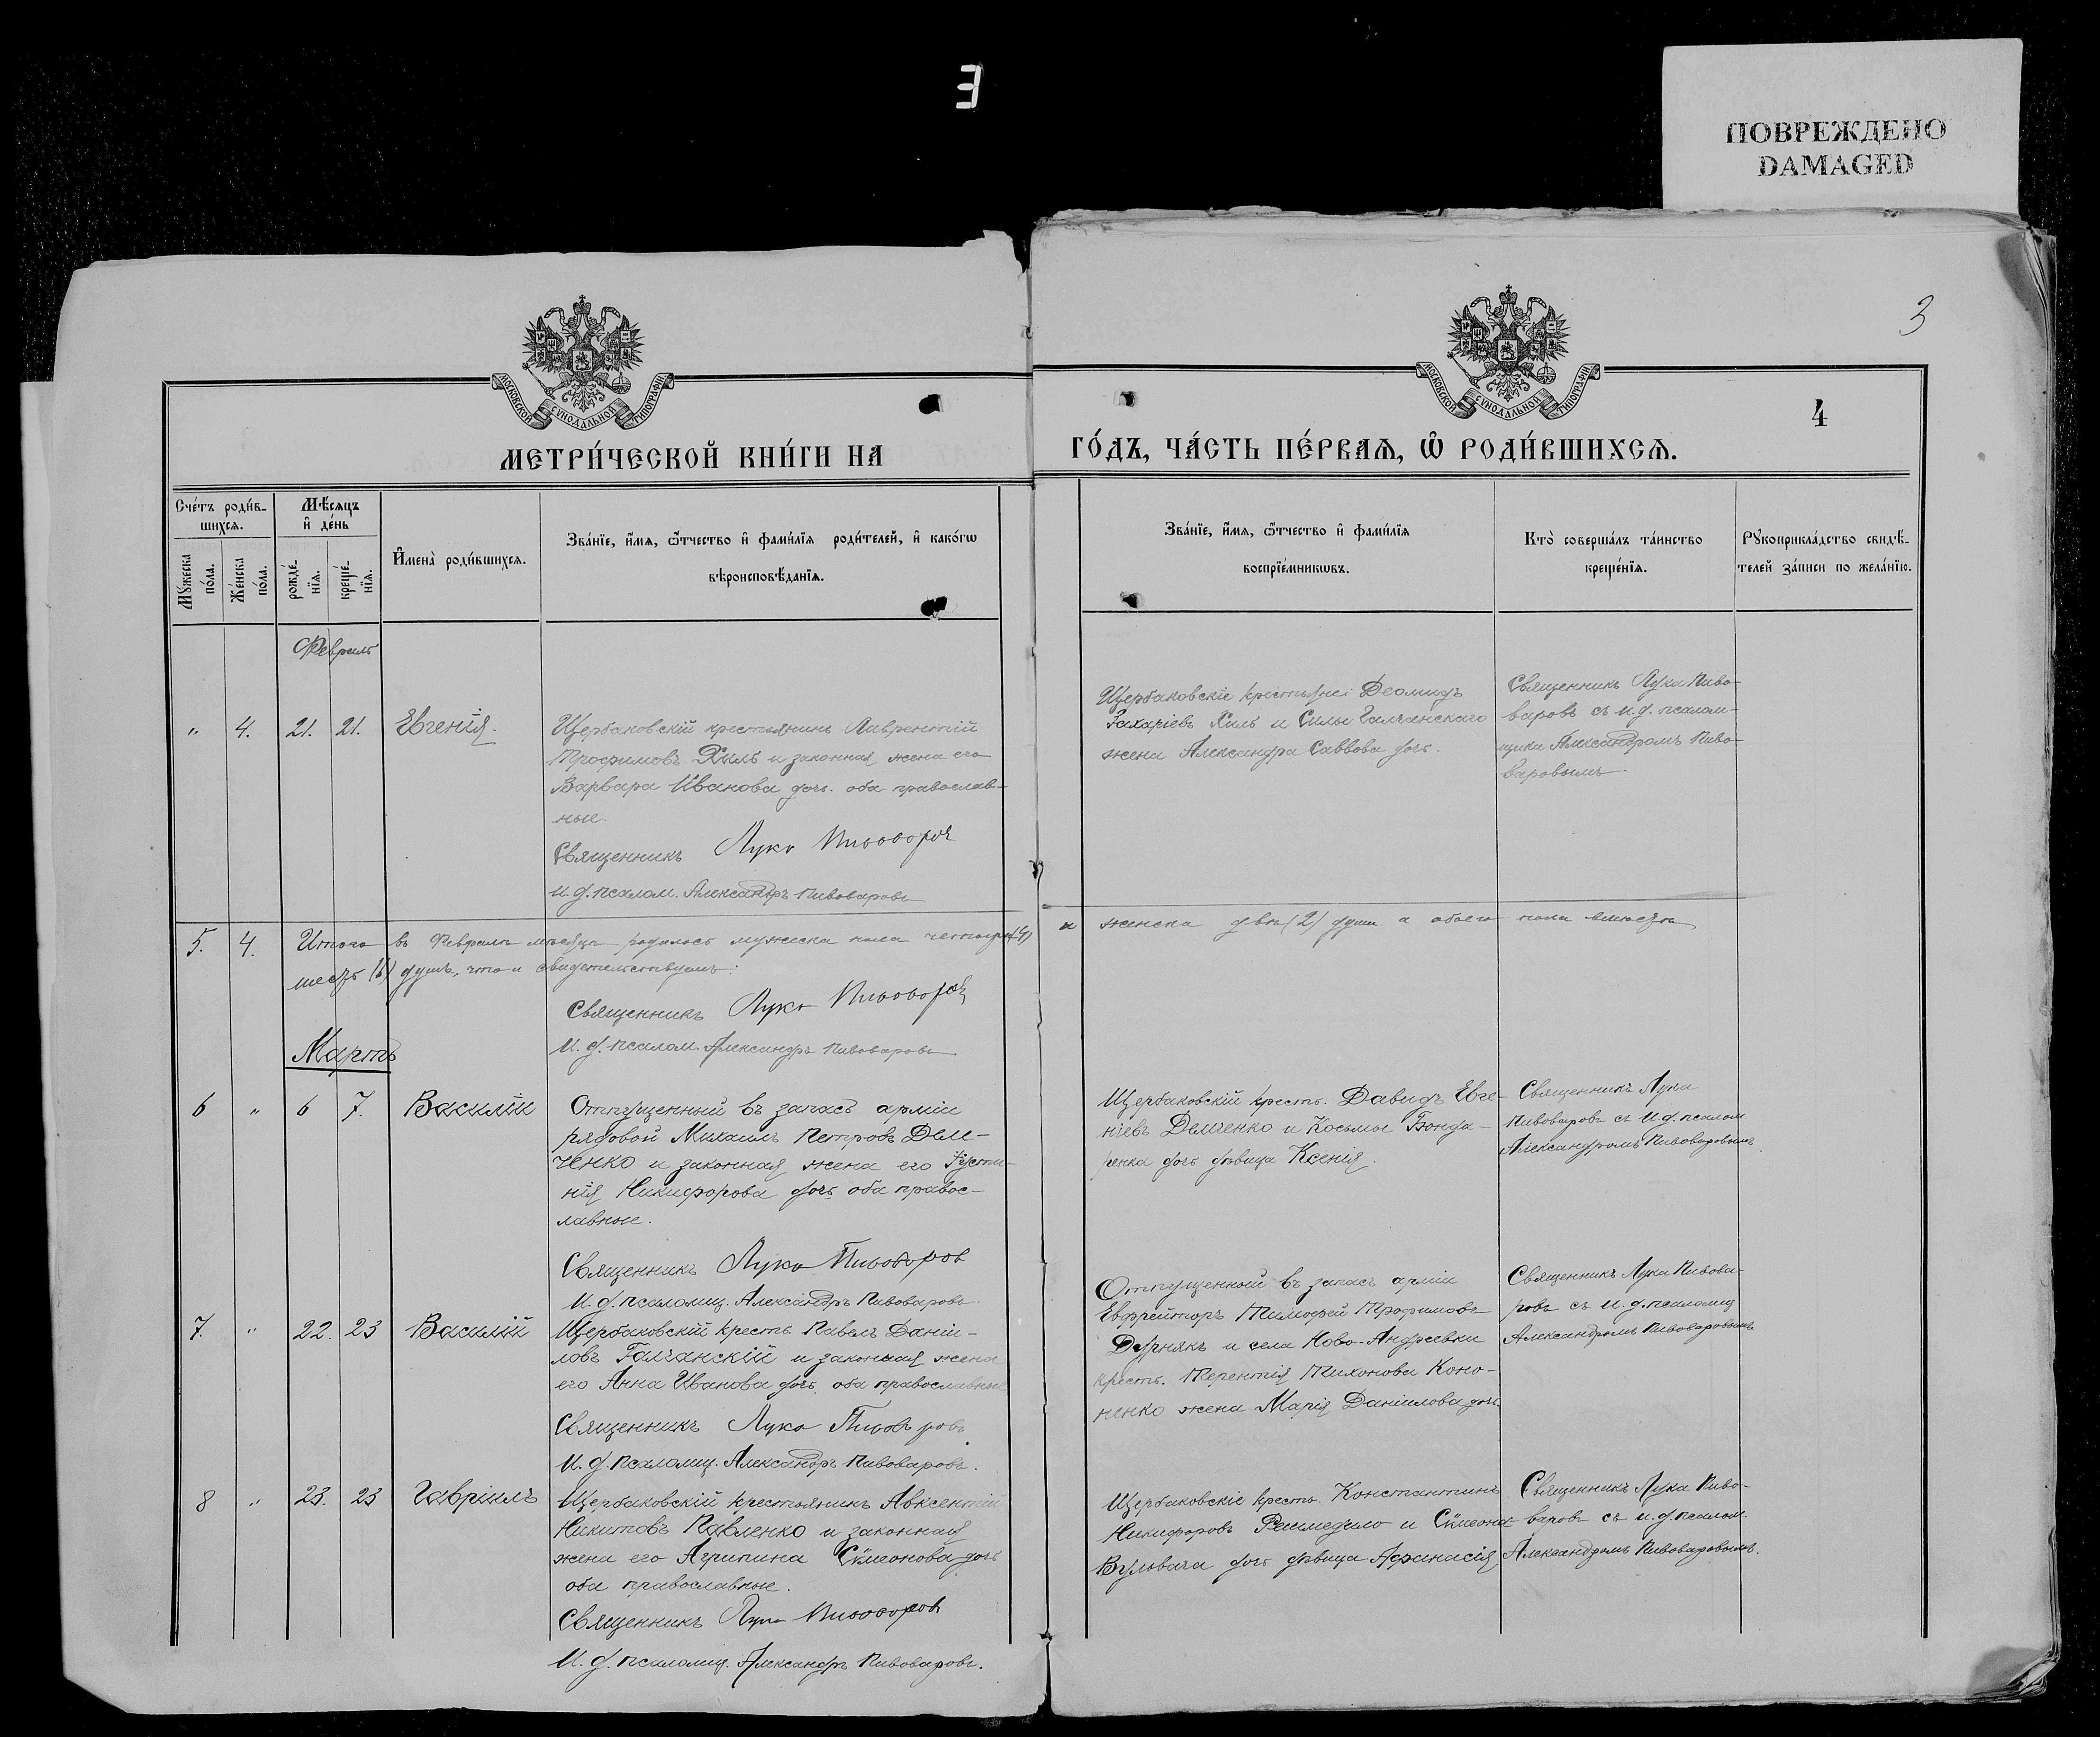 Е
ПОВРЕЖДЕНО
DAMAGED
3
МОСКОВСКОЙ СУНОДАЛЬНОЙ ТИПОГРАФІИ
МОСКОВСКОЙ СУНОДАЛЬНОЙ ТИПОГРАФІИ
4
МЕТРИ́ЧЕСКОЙ КНИ́ГИ НА
ГО́ДЪ, ЧА́СТЬ ПЕ́РВАѦ, Ѡ҆ РОДИ́ВШИХСѦ.
Сче́тъ роди́в-
шихсѧ.
Мѣ́сѧцъ
и҆ де́нь
Мꙋ́жеска
по́ла.
Же́нска
по́ла.
рожде́-
нїѧ.
креще́-
нїѧ.
И҆мена̀ роди́вшихсѧ.
Зва́нїе, и҆́мѧ, ѻ҆́тчество и҆ фами́лїѧ роди́телей, и҆ како́гѡ
вѣроисповѣ́данїѧ.
Зва́нїе, и҆́мѧ, ѻ҆́тчество и҆ фами́лїѧ
воспрїе́мникѡвъ.
Кто̀ соверша́лъ та́инство
креще́нїѧ.
Рꙋкоприкла́дство свидѣ́-
телей за́писи по жела́нїю.
Февраль
" 4. 21. 21. Евгенія.
Щербаковскій крестьянинъ Лаврентій
Трофимовъ Хиль и законная жена его
Варвара Иванова дочь. оба православ-
ные.
Священникъ Лука Пивоваров
и. д. псалом. Александръ Пивоваровъ
Щербаковскіе крестьяне Деомидъ
Захаріевъ Хиль и Силы Галчанскаго
жена Александра Саввова дочь.
Священникъ Лука Пиво-
варовъ съ и. д. псалом-
щика Александромъ Пиво-
варовымъ
5. 4. Итого въ Февралѣ мѣсяцѣ родилось мужеска пола четыре (4)
и женска двѣ (2) души а обоего пола вмѣстѣ
шесть (6) душъ, что и свидетельствуемъ:
Священникъ Лука Пивоваров
И. д. псалом. Александръ Пивоваровъ
Мартъ
6 " 6 7. Василій
Отпущенный въ запасъ арміи
рядовой Михаилъ Петровъ Дем-
ченко и законная жена его Іусти-
нія Никифорова дочь оба правос-
лавные.
Священникъ Лука Пивоваров
И. д. псаломщ. Александръ Пивоваровъ
Щербаковскій крестъ. Давидъ Евге-
ніевъ Демченко и Косьмы Бонда-
ренка дочь дѣвица Ксенія.
Священникъ Лука
Пивоваровъ съ И. д. псалом
Александромъ Пивоваровымъ.
7. " 22. 23 Василій
Щербаковскій крестъ. Павелъ Даніи-
ловъ Галчанскій и законная жена
его Анна Иванова дочь оба православные
Священникъ Лука Пивоваровъ
И. д. псаломщ. Александръ Пивоваровъ.
Отпущенный въ запасъ арміи
Евфрейторъ Тимофей Трофимовъ
Дурнякъ и села Ново-Андреевки
крестъ. Терентія Тихонова Коно-
ненко жена Марія Даніилова дочь.
Священникъ Лука Пивова-
ровъ съ И. д. псаломщ
Александромъ Пивоваровымъ
8 " 23. 23 Гавріилъ
Щербаковскій крестьянинъ Авксентій
Никитовъ Павленко и законная
жена его Агрипина Сѵмеонова дочь
оба православные.
Священникъ Лука Пивоваров
И. д. псаломщ. Александръ Пивоваровъ.
Щербаковскіе крестъ. Константинъ
Никифоровъ и Сѵмеона
дочь дѣвица Афанасія
Священникъ Лука Пиво-
варовъ съ и. д. псалом.
Александромъ Пивоваровымъ.